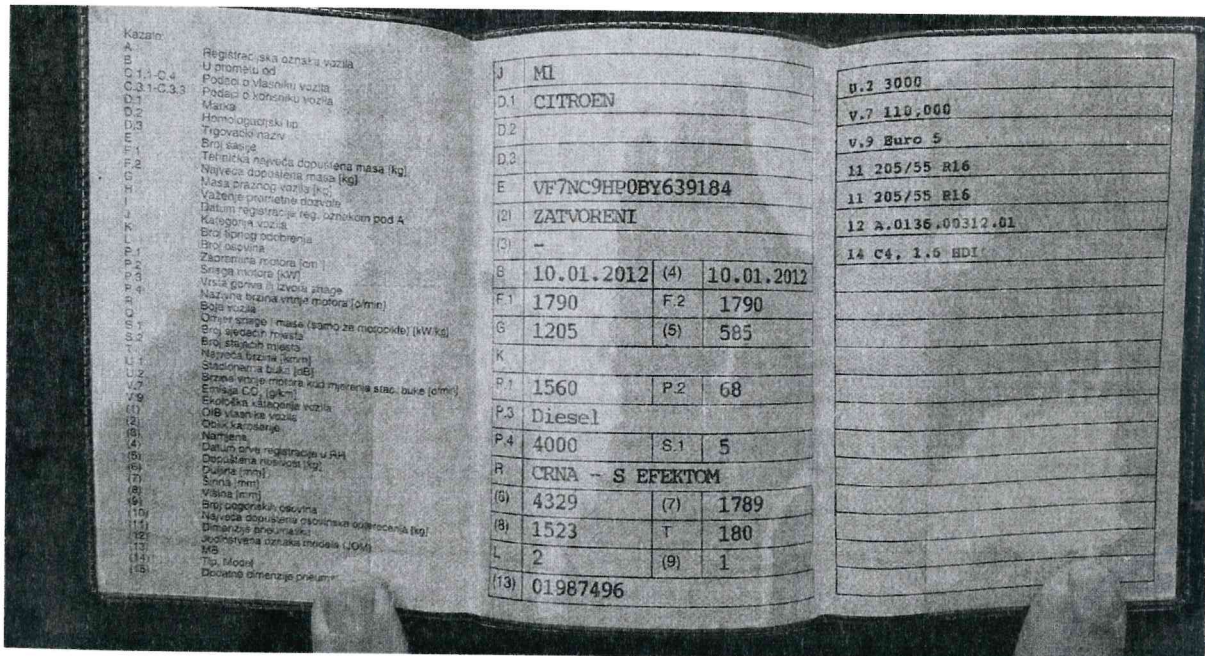 Kazalo:
A Registracijska oznaka vozila
B U prometu od
C.1.1-C.4 Podaci o vlasniku vozila
C.3.1-C.3.3 Podaci o korisniku vozila
D.1 Marka
D.2 Homologacijski tip
D.3 Trgovački naziv
E Broj šasije
F.1 Tehnička najveća dopuštena masa [kg]
F.2 Najveća dopuštena masa [kg]
G Masa praznog vozila [kg]
H Važenje prometne dozvole
I Datum registracije reg. oznakom pod A
J Kategorija vozila
K Broj tipnog odobrenja
L Broj osovina
P.1 Zapremina motora [cm³]
P.2 Snaga motora [kW]
P.3 Vrsta goriva ili izvora snage
P.4 Nazivna brzina vrtnje motora [o/min]
R Boja vozila
Q Omjer snage i mase (samo za motocikle) [kW/kg]
S.1 Broj sjedaćih mjesta
S.2 Broj stajaćih mjesta
T Najveća brzina [km/h]
U.1 Stacionarna buka [dB]
U.2 Brzina vrtnje motora kod mjerenja stac. buke [o/min]
V.7 Emisija CO₂ [g/km]
V.9 Ekološka kategorija vozila
(1) OIB vlasnika vozila
(2) Oblik karoserije
(3) Namjena
(4) Datum prve registracije u RH
(5) Dopuštena nosivost [kg]
(6) Duljina [mm]
(7) Širina [mm]
(8) Visina [mm]
(9) Broj pogonskih osovina
(10) Najveća dopuštena osovinska opterećenja [kg]
(11) Dimenzije pneumatika
(12) Jedinstvena oznaka modela (JOM)
(13) MB
(14) Tip, Model
(15) Dodatne dimenzije
J M1
D.1 CITROEN
D.2
D.3
E VF7NC9HP0BY639184
(2) ZATVORENI
(3) –
B 10.01.2012 (4) 10.01.2012
F.1 1790 F.2 1790
G 1205 (5) 585
K
P.1 1560 P.2 68
P.3 Diesel
P.4 4000 S.1 5
R CRNA - S EFEKTOM
(6) 4329 (7) 1789
(8) 1523 T 180
L 2 (9) 1
(13) 01987496
U.2 3000
V.7 110,000
V.9 Euro 5
11 205/55 R16
11 205/55 R16
12 A.0136.00312.01
14 C4, 1.6 HDI